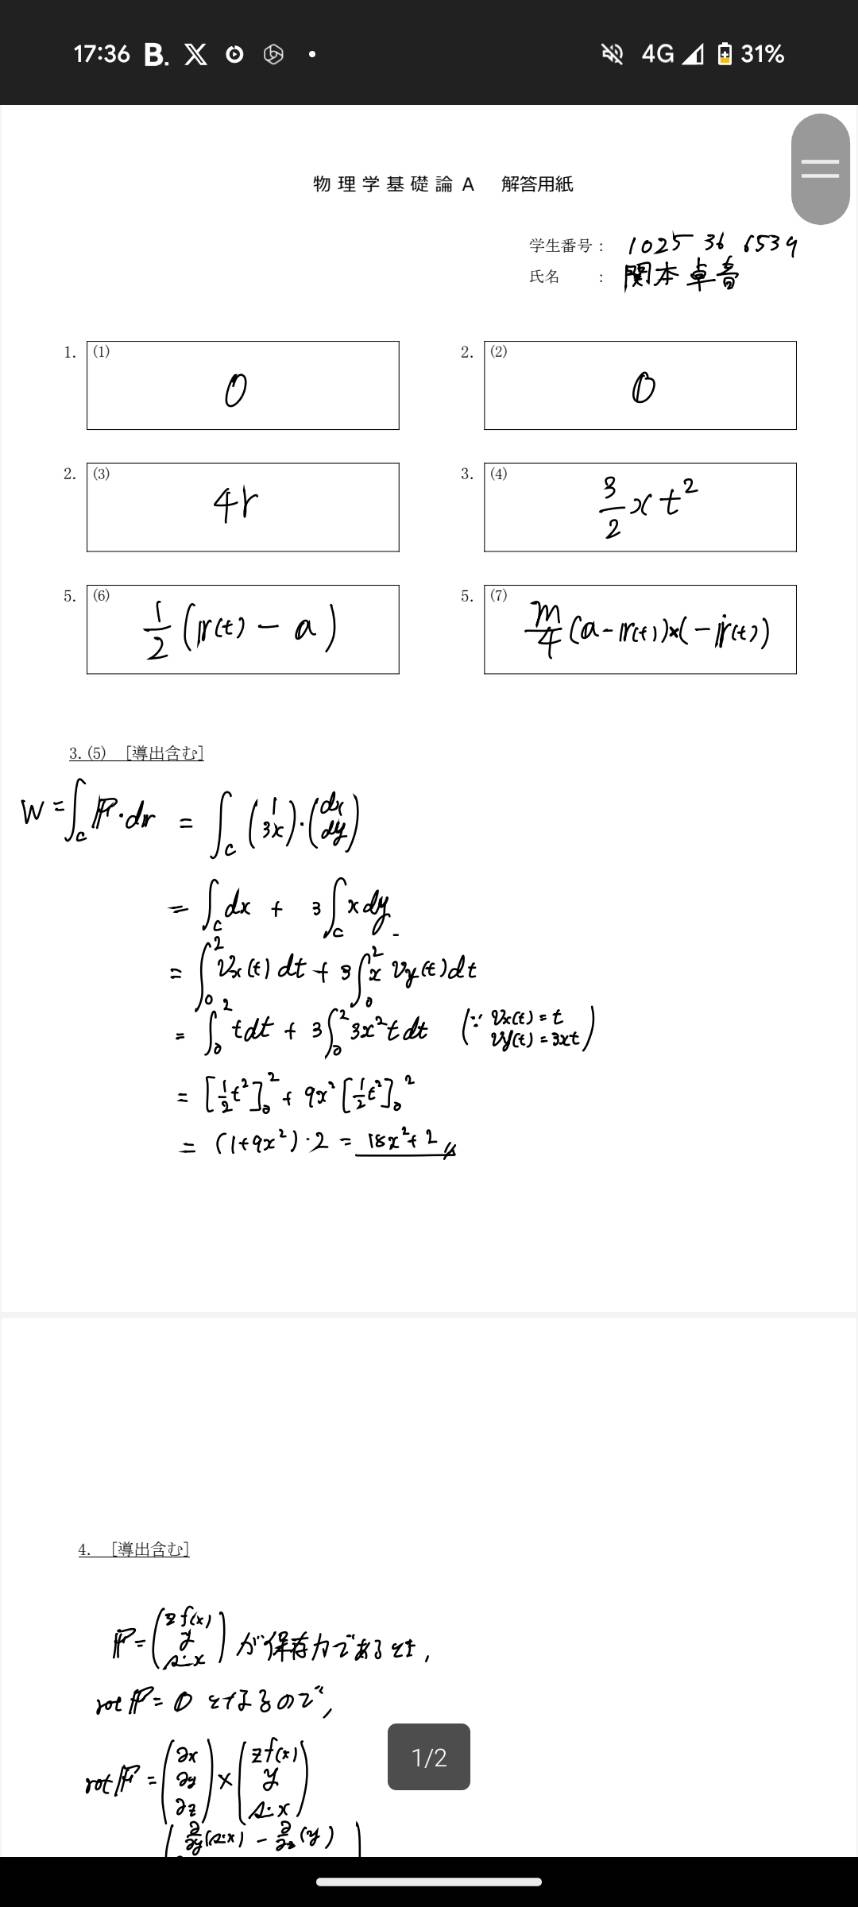 17:36 B. X 4G 31%
物理学基礎論A 解答用紙
学生番号： 1025 36 6539
氏名 ： 関本卓音
1. (1) 0
2. (2) 0
2. (3) 4r
3. (4) 3/2 x t²
5. (6) 1/2 (r(t) − a)
5. (7) m/4 (a − r(t)) × (− ṙ(t))
3. (5) [導出含む]
W = ∫_C F・dr = ∫_C (1 3x)・(dx dy)
= ∫_C dx + 3∫_C x dy
= ∫₀² Vx(t) dt + 3∫₀² x Vy(t) dt
= ∫₀² t dt + 3∫₀² 3x² t dt (∵ Vx(t) = t Vy(t) = 3xt)
= [1/2 t²]₀² + 9x² [1/2 t²]₀²
= (1+9x²)・2 = 18x² + 2
4. [導出含む]
F = (z f(x) y sin x) が保存力であるとき,
rot F = 0 となるので,
rot F = (∂x ∂y ∂z) × (z f(x) y sin x)
1/2
(∂/∂y (sin x) − ∂/∂z (y))